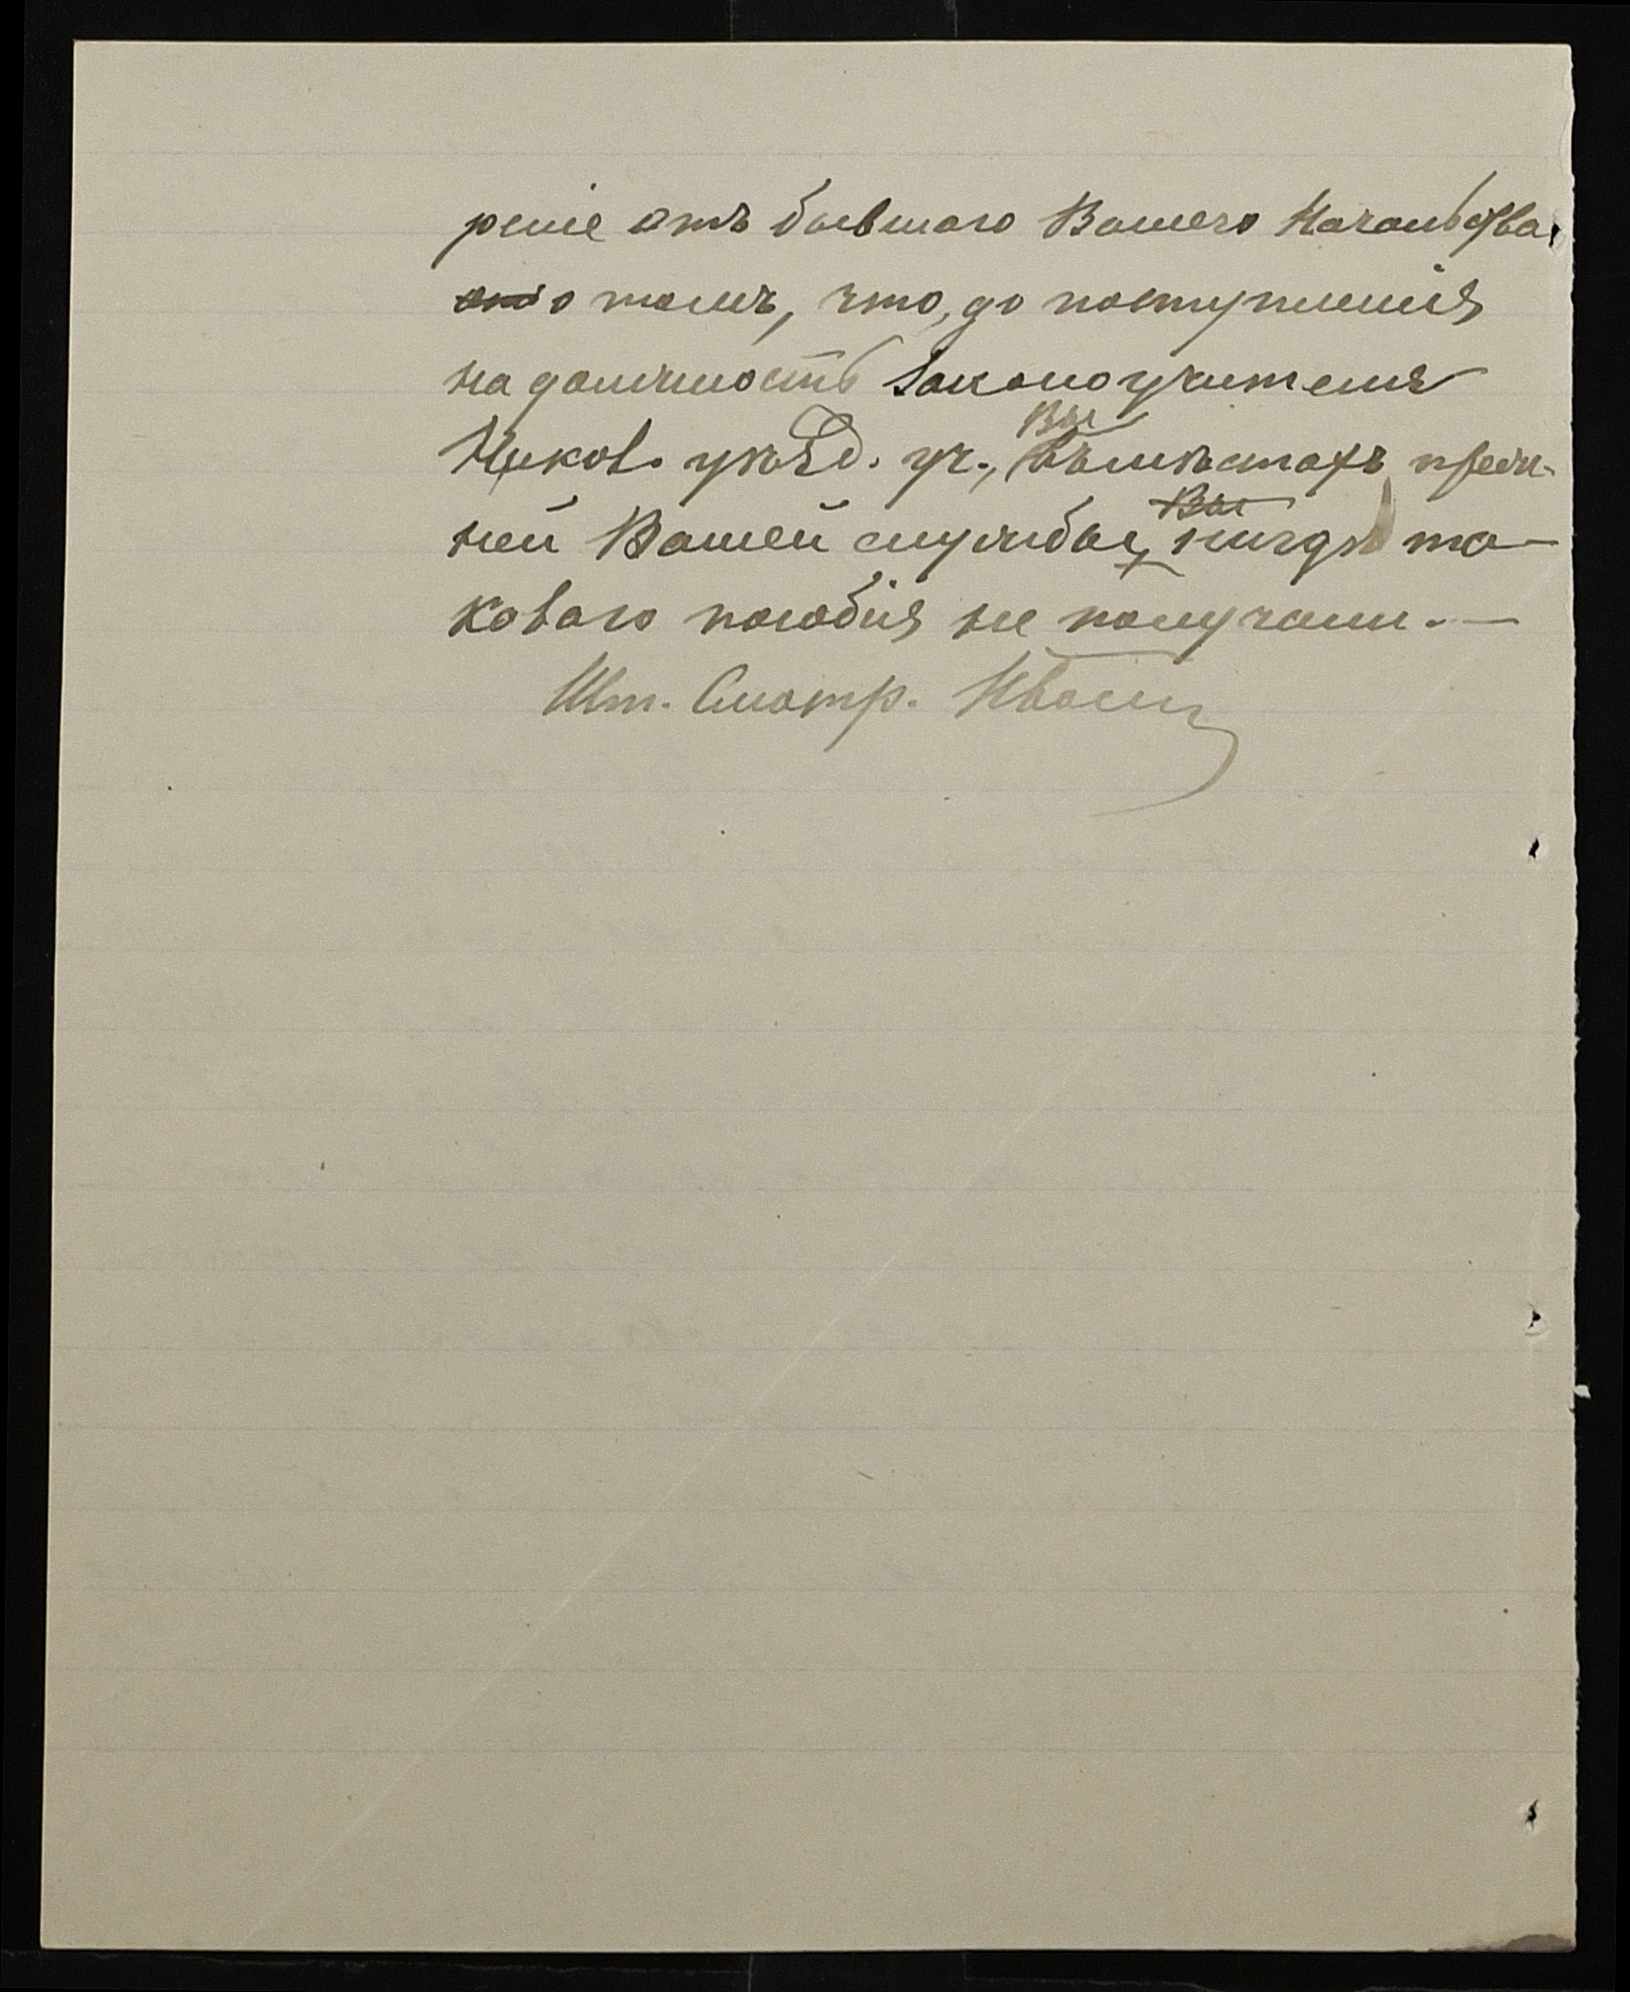 реніе отъ бывшаго Вашего Начальства
о томъ, что, до поступленія
на должность Законоучителя
уѣзд. уч., Вы въ мѣстахъ преж-
ней Вашей службы, нигдѣ та-
коваго пособія не получали. —
Шт. Смотр.